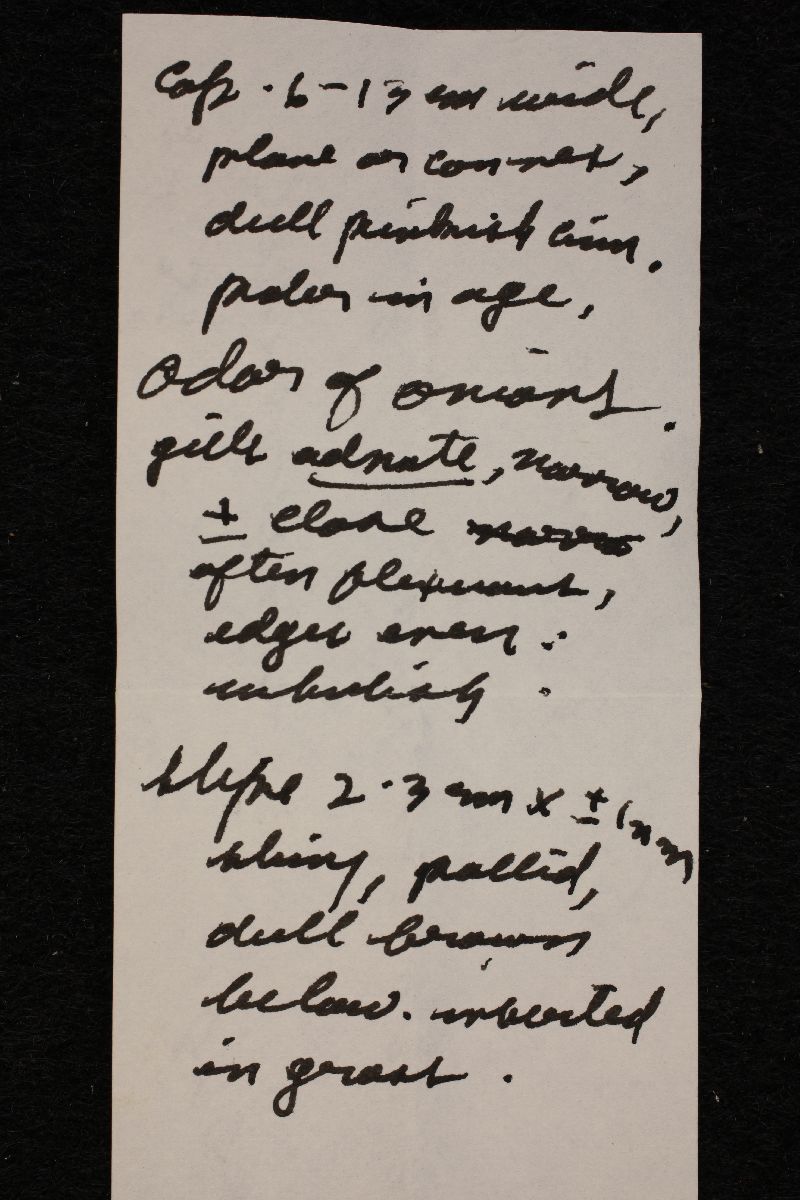 Cap .6-13 mm wide,
plane or convex,
dull pinkish cinn.
paler in age,
Odor of onions.
gills adnate, narrow,
± close
often flexuous,
edges even :
whitish .
stipe 2-3 cm x ± 1 mm
shiny, pallid,
dull brown
below. inserted
in grass .